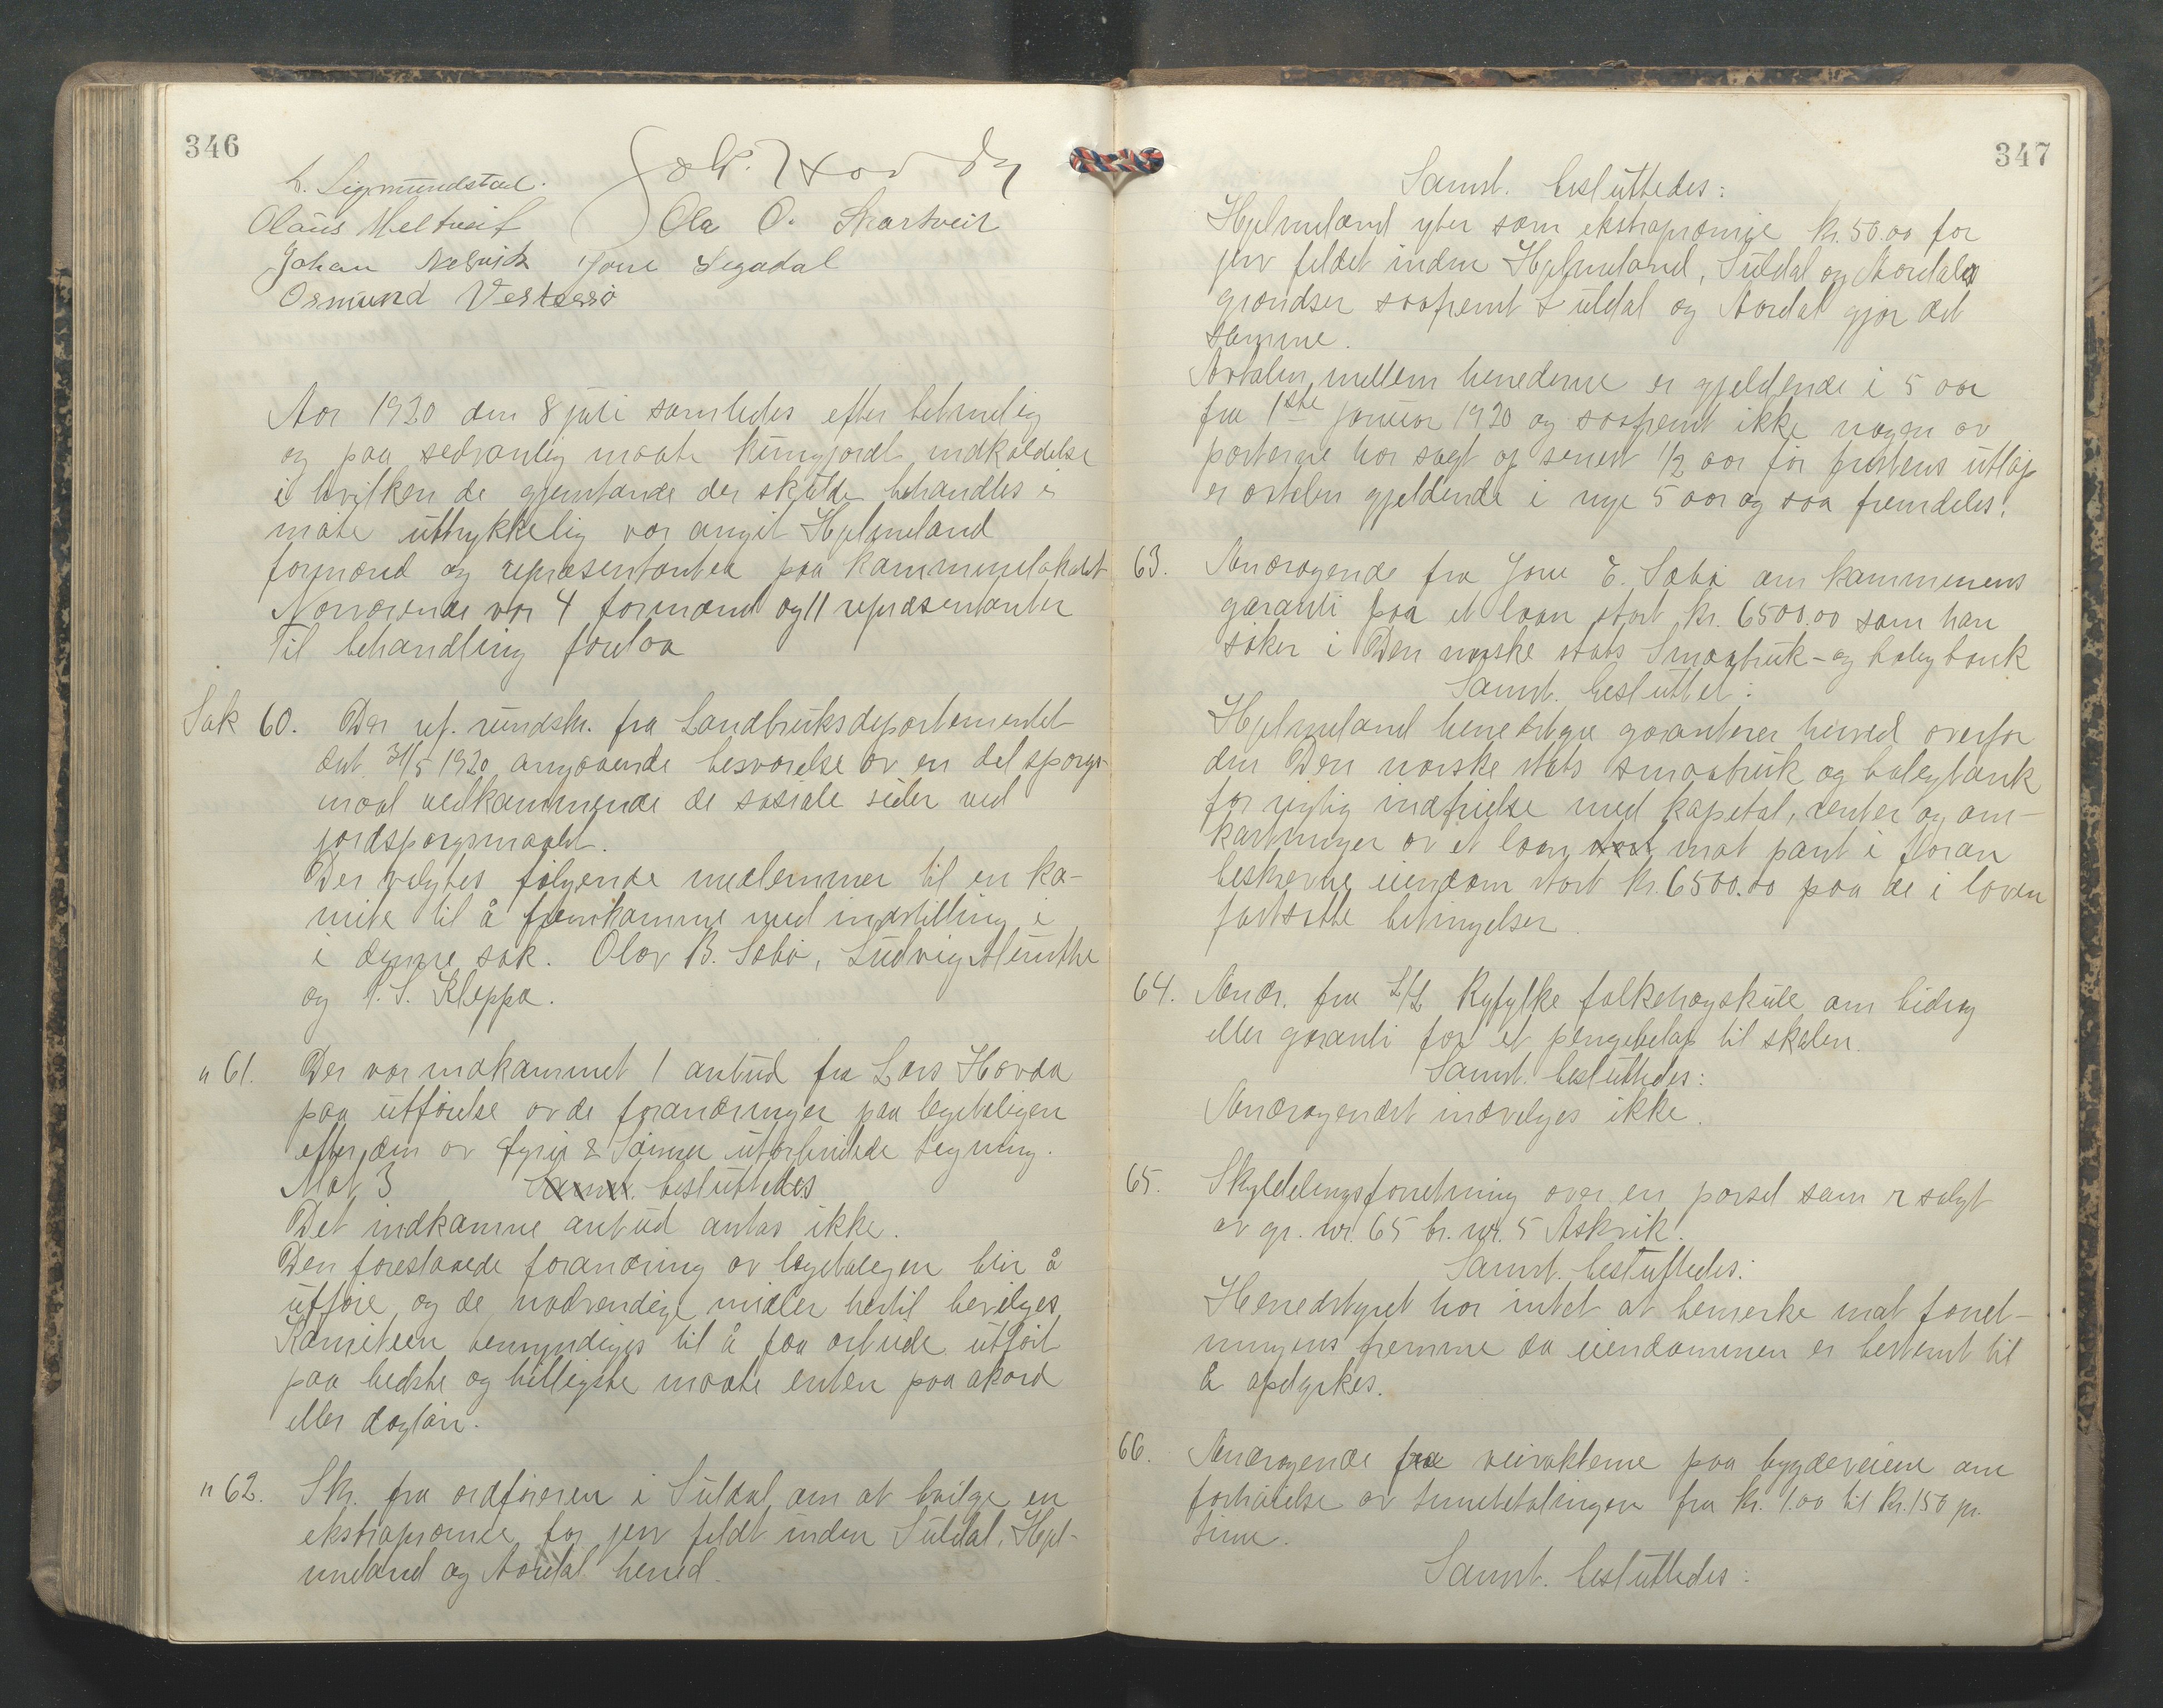 346
L. Sigmundstad.
Olaus Meltveit Ola O. Skartveit
Johan Nesvik Jone Segadal
Osmund Vestersjø
Aar 1920 den 8 juli samledes efter betimelig
og paa sedvanlig maate kungjordt indkaldelse
i hvilken de gjenstande der skulde behandles i
møte uttrykkelig var angit Hjelmeland
formænd og repræsentanter paa kommunelokalet
Nærværende var 4 formænd og 11 repræsentanter
Til behandling forelaa
Sak 60. Der ref. rundskr. fra Landbruksdepartementet
dat 31/5 1920 angaaende besvarelse av en del spørgs-
maal vedkommende de sosiale sider ved
jordspørgsmaalet.
Der valgtes følgende medlemmer til en ko-
mite til å fremkomme med indstilling i
i denne sak. Olav B. Sæbø, Ludvig Munthe
og P. S. Kleppa.
" 61. Der var indkommet 1 anbud fra Lars Hovda
paa utførelse av de forandringer paa lægeboligen
efter den av Eyvin & Sønner utarbeidede tegning.
Mot 3 Samt. besluttedes
Det indkomne anbud antas ikke.
Den foreslaaede forandring av lægeboligen blir å
utføre og de nødvendige midler hertil bevilges
Komiteen bemyndiges til å faa arbeide utført
paa bedste og billigste maate enten paa akord
eller dagløn.
" 62. Skr. fra ordføreren i Suldal om at bevilge en
ekstrapræmie for jerv fældt inden Suldal, Hjel-
meland og Aardal herred.
347
Samt. besluttedes:
Hjelmeland yder som ekstrapræmie kr. 50.00 for
jerv fældet inden Hjelmeland, Suldal og Aardals
grændser saafremt Suldal og Aardal gjør det
samme.
Avtalen mellem herrederne er gjeldende i 5 aar
fra 1ste januar 1920 og saafremt ikke nogen av
parterne har sagt op senest 1/2 aar før fristens utløp
er avtalen gjeldende i nye 5 aar og saa fremdeles.
63. Andragende fra Jone E. Sæbø om kommunens
garanti paa et laan stort kr. 6500.00 som han
søker i Den norske stats Smaabruk- og boligbank
Samt. besluttet:
Hjelmeland herredstyre garanterer herved overfor
den Den norske stats smaabruk og boligbank
for rigtig indfrielse med kapital, renter og om-
kostninger av et laan stort mot pant i foran
beskrevne eiendom stort kr. 6500.00 paa de i loven
fastsatte betingelser.
64. Andr. fra L/L Ryfylke folkehøgskule om bidrag
eller garanti for et pengebeløp til skolen.
Samt. besluttedes:
Andragendet indvilges ikke.
65. Skylddelingsforretning over en parsel som er solgt
av gr. nr. 65 br. nr. 5 Askvik.
Samt. besluttedes:
Herredstyret har intet at bemerke mot forret-
ningens fremme da eiendommen er bestemt til
å opdyrkes.
66. Andragende fra veivokterne paa bygdeveiene om
forhøielse av timebetalingen fra kr. 1.00 til kr. 1.50 pr.
time.
Samt. besluttedes: